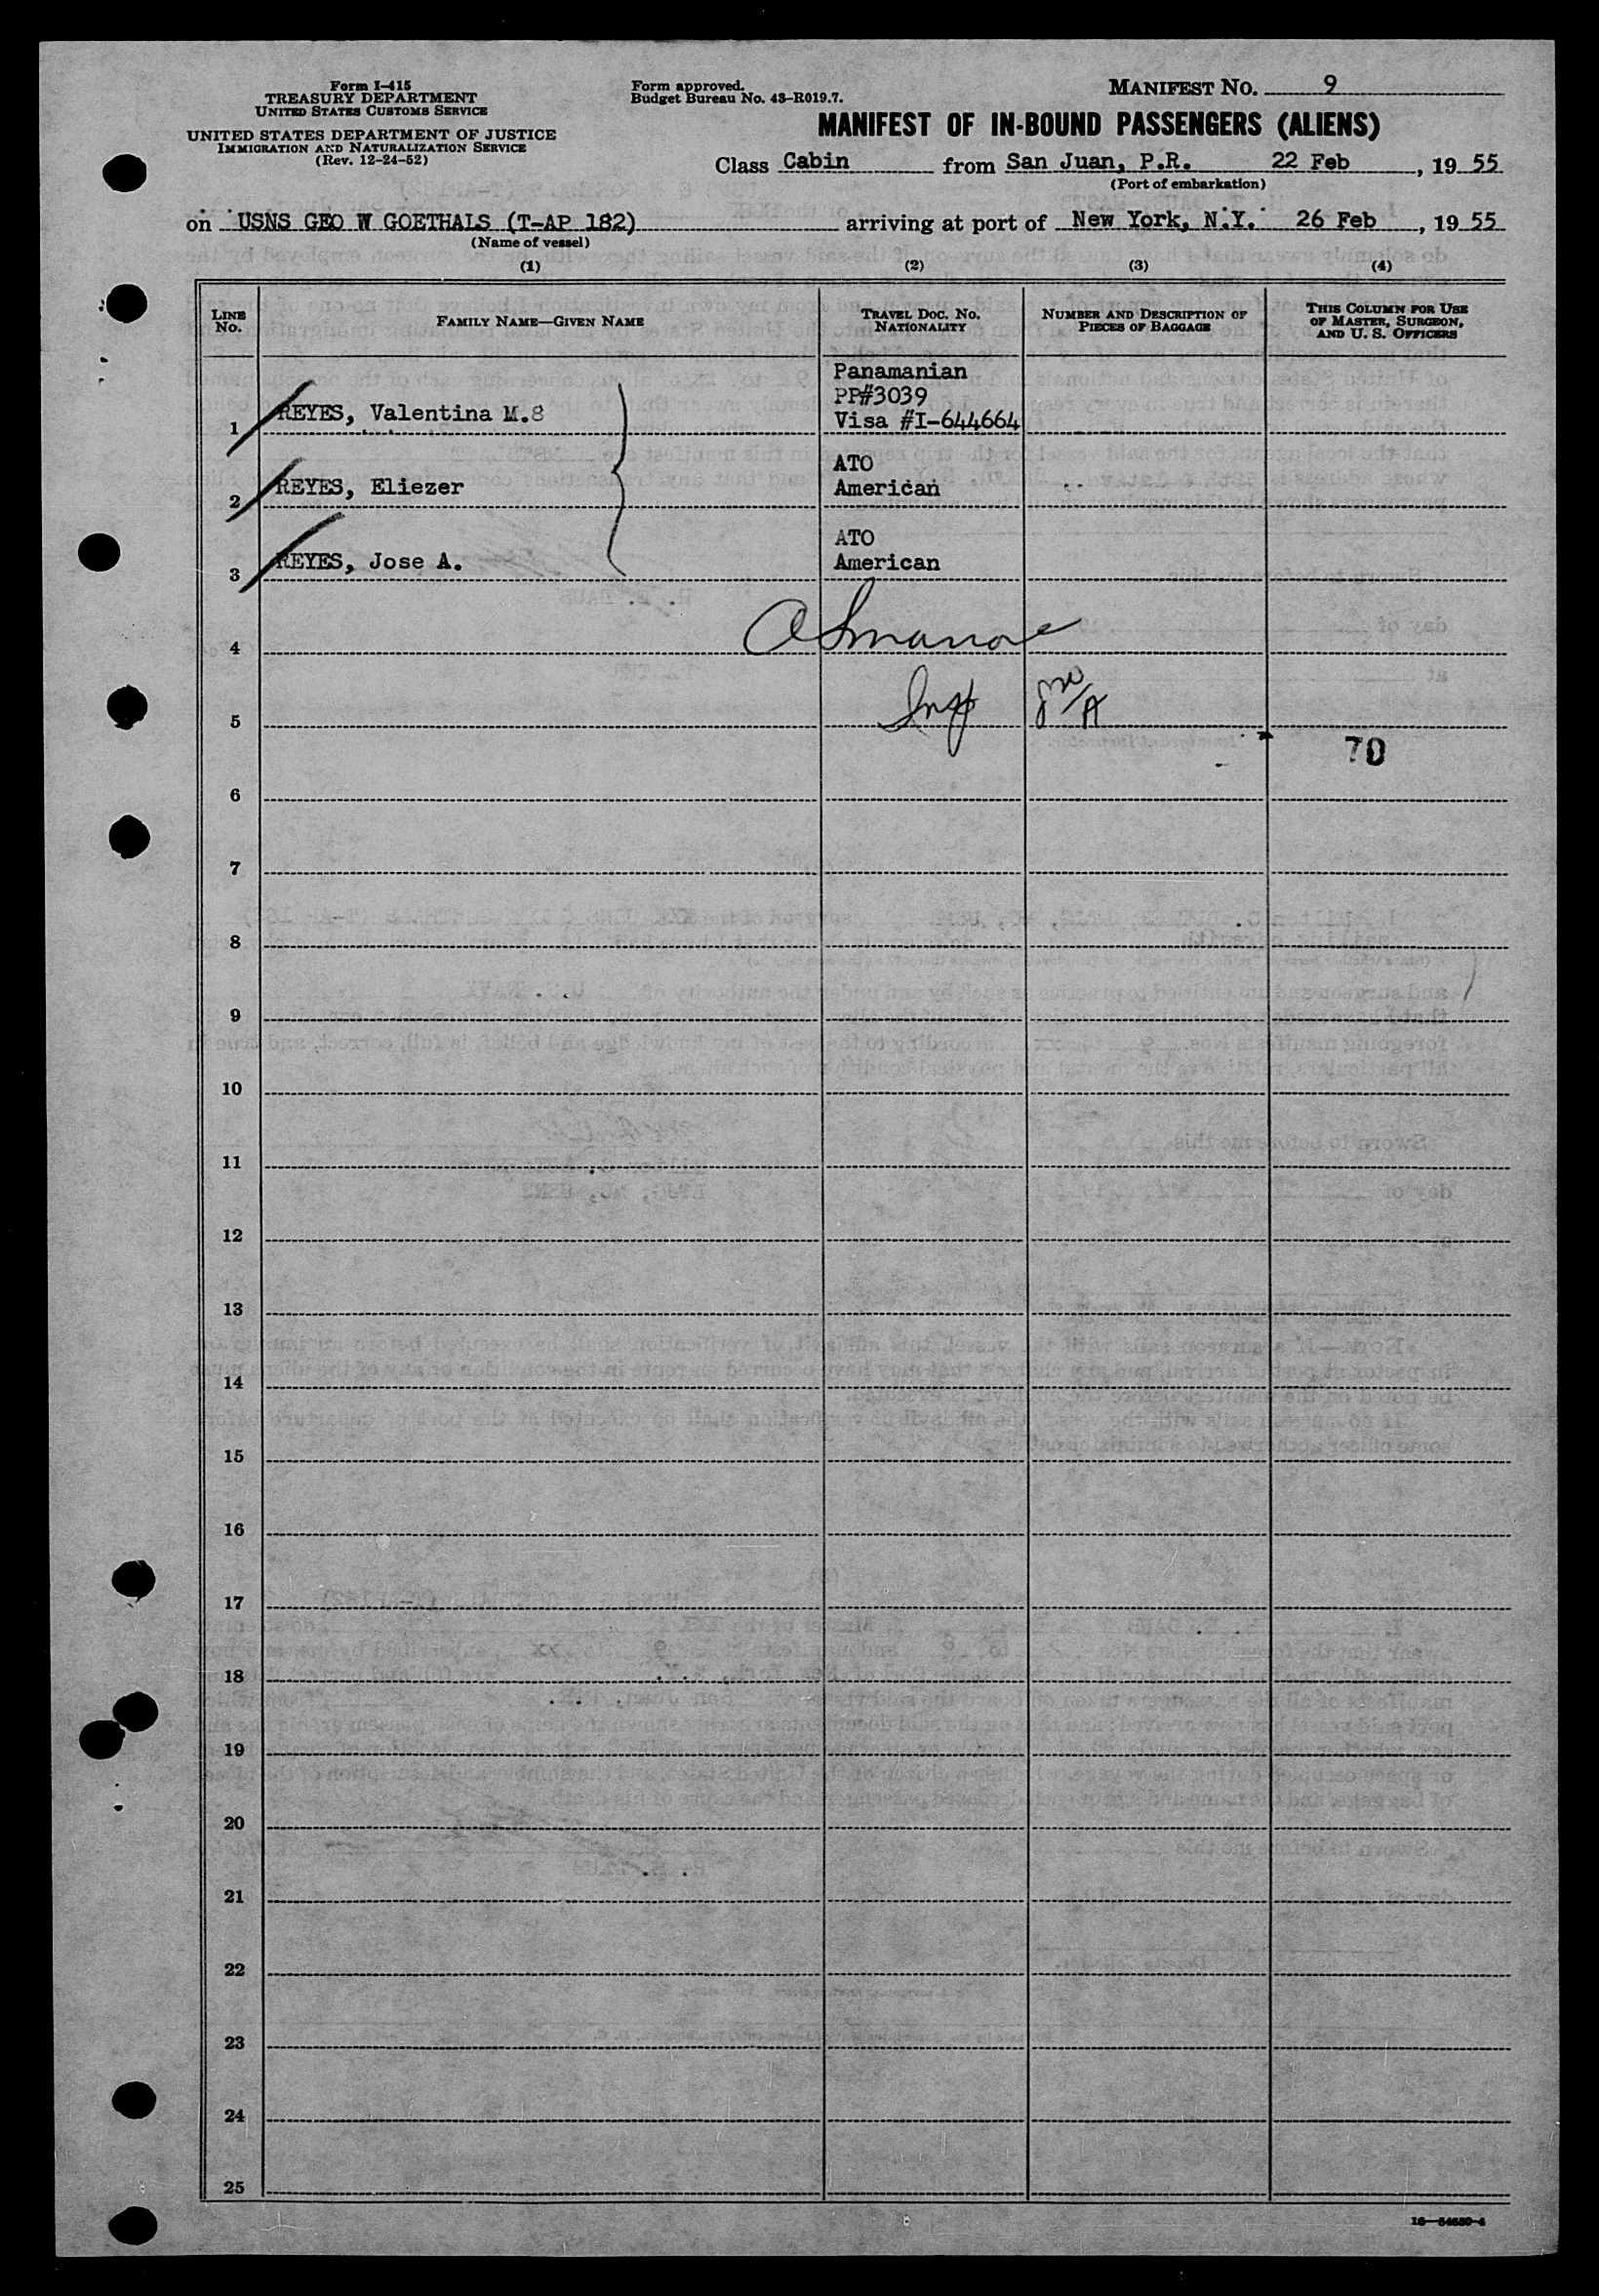 Form I-415
TREASURY DEPARTMENT
UNITED STATES CUSTOMS SERVICE
UNITED STATES DEPARTMENT OF JUSTICE
IMMIGRATION AND NATURALIZATION SERVICE
(Rev. 12-24-52)
Form approved.
Budget Bureau No. 43-R019.7.
MANIFEST NO. 9
MANIFEST OF IN-BOUND PASSENGERS (ALIENS)
Class Cabin from San Juan, P.R. 22 Feb, 19 55
(Port of embarkation)
on USNS GEO W GOETHALS (T-AP 182) arriving at port of New York, N.Y. 26 Feb, 19 55
(Name of vessel)
(1) (2) (3) (4)
LINE NO. FAMILY NAME—GIVEN NAME TRAVEL DOC. NO. NATIONALITY NUMBER AND DESCRIPTION OF PIECES OF BAGGAGE THIS COLUMN FOR USE OF MASTER, SURGEON, AND U. S. OFFICERS
Panamanian
PP#3039
1 REYES, Valentina M.S Visa #I-644664
ATO
2 REYES, Eliezer American
ATO
3 REYES, Jose A. American
4
5
70
6
7
8
9
10
11
12
13
14
15
16
17
18
19
20
21
22
23
24
25